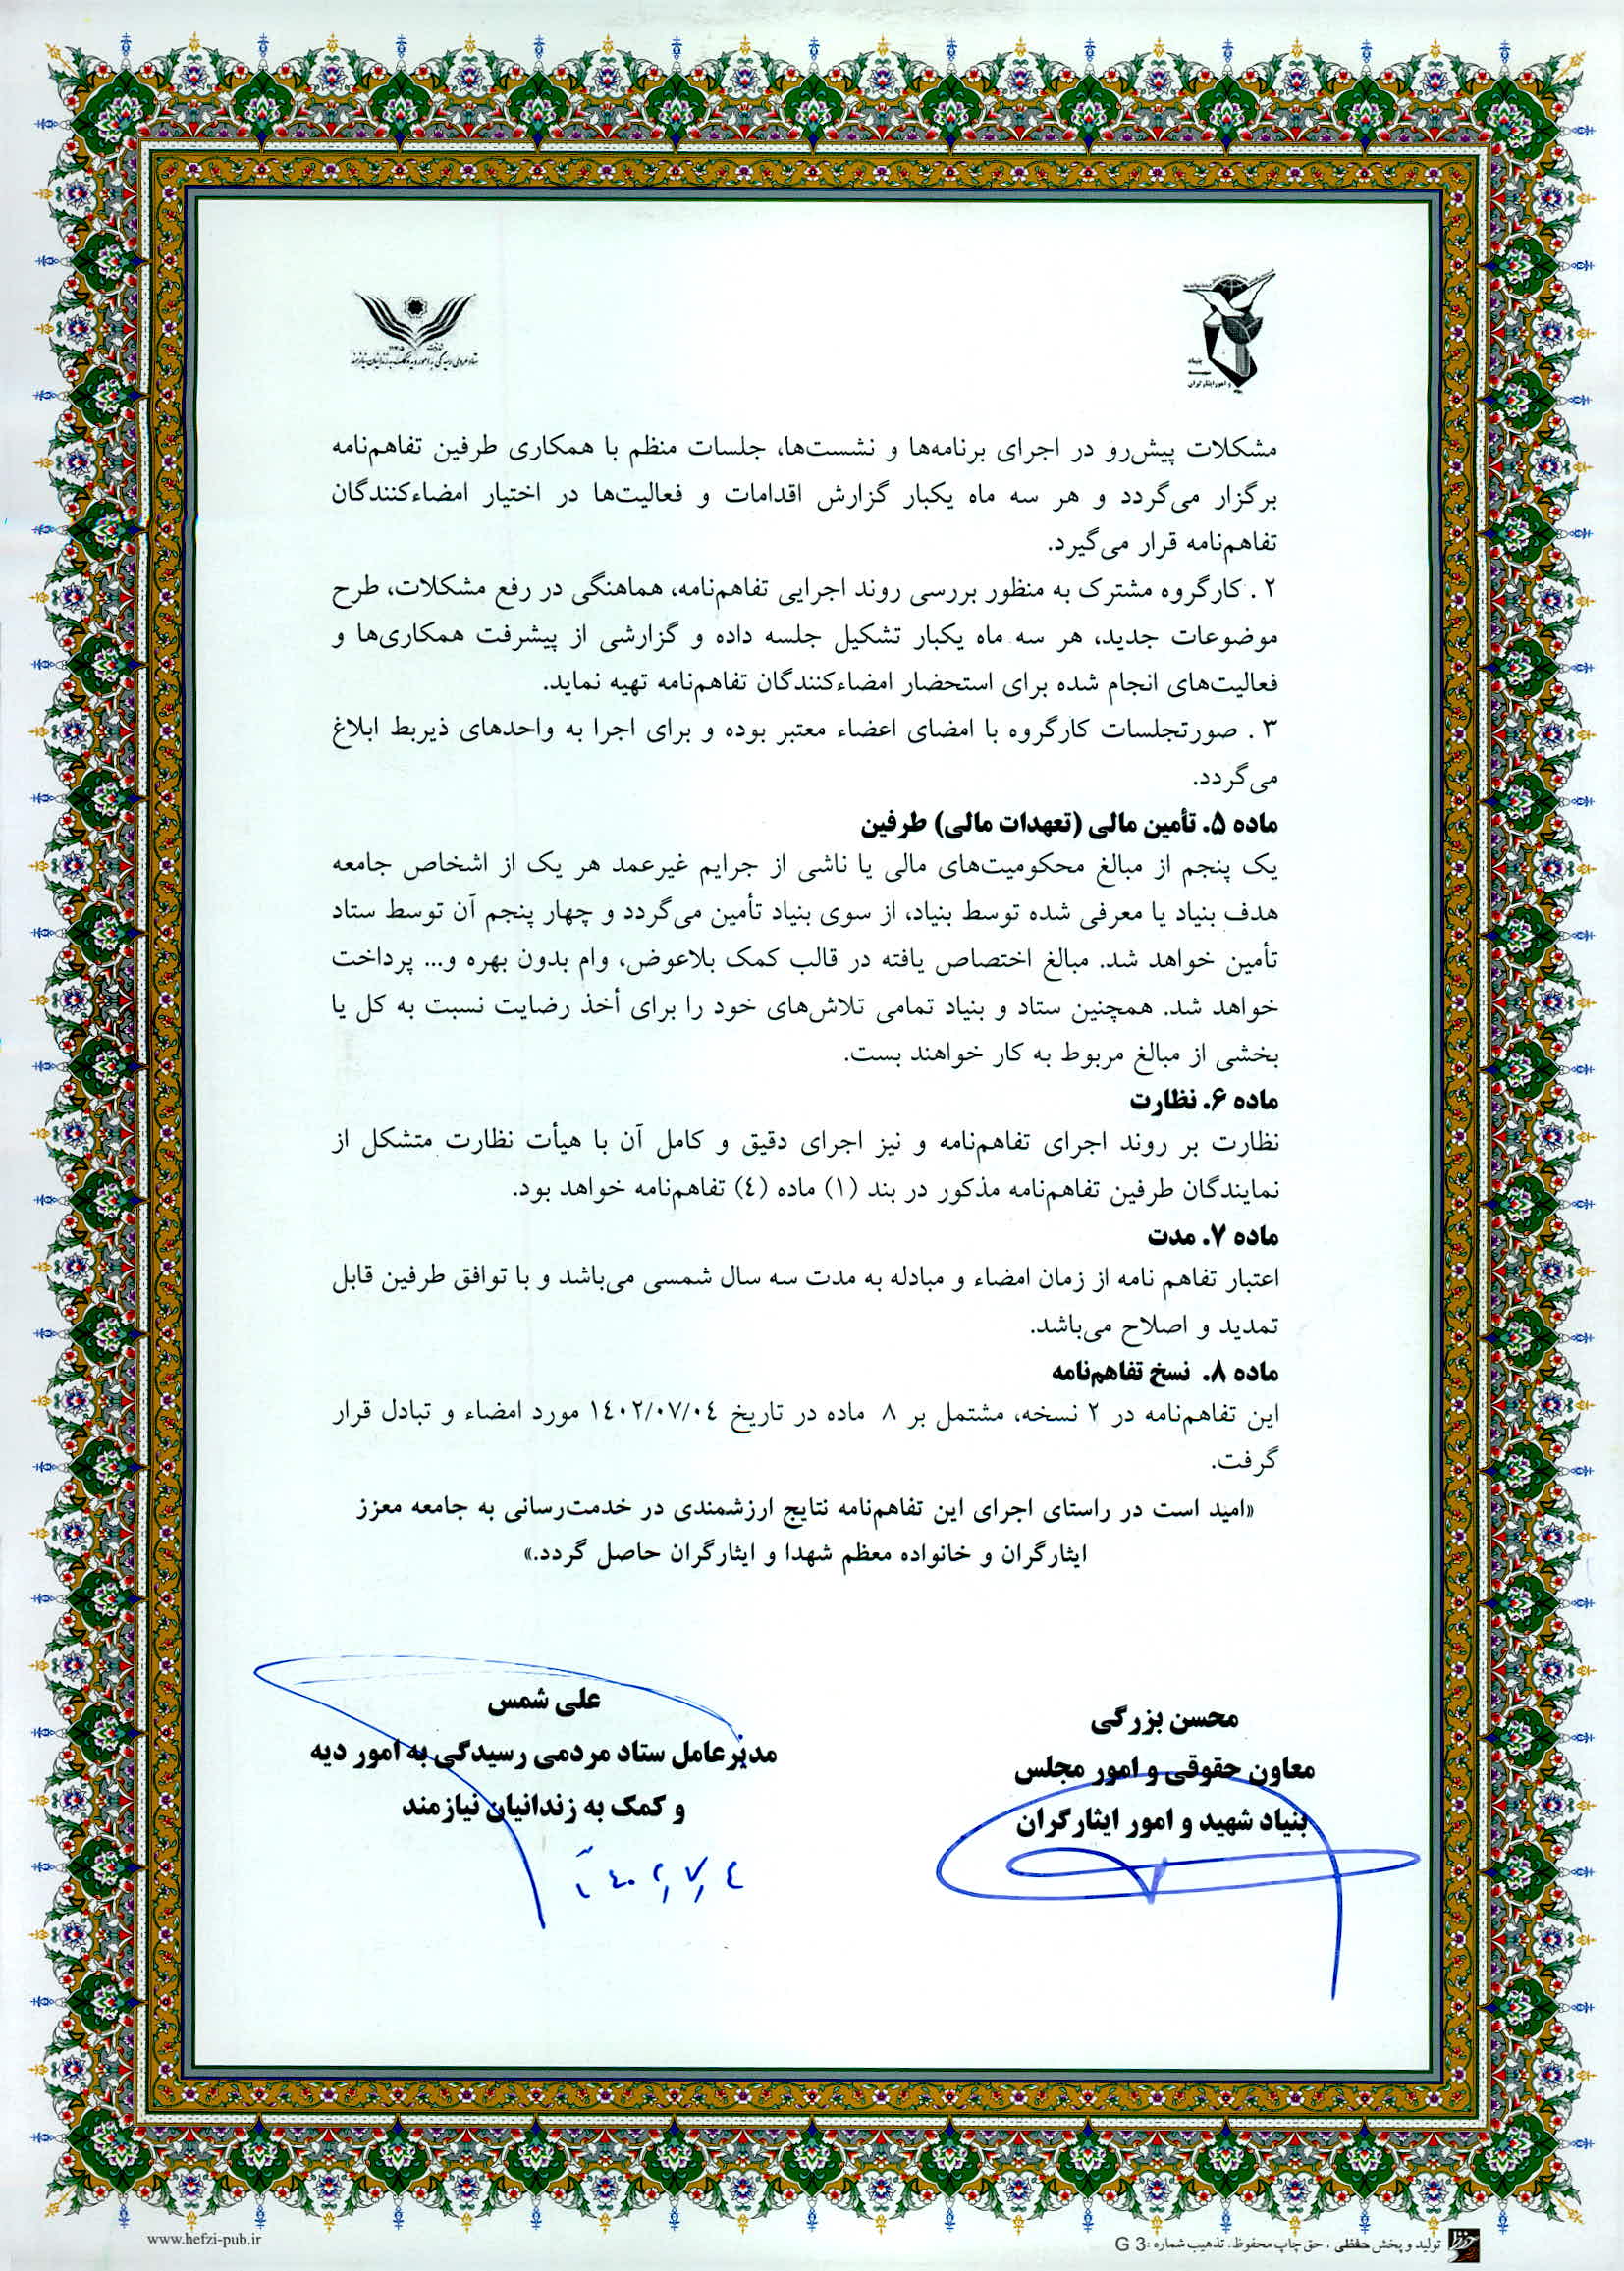 بنیاد
و امور ایثارگران
ستاد مردمی رسیدگی به امور دیه و کمک به زندانیان نیازمند
مشکلات پیش‌رو در اجرای برنامه‌ها و نشست‌ها، جلسات منظم با همکاری طرفین تفاهم‌نامه
برگزار می‌گردد و هر سه ماه یکبار گزارش اقدامات و فعالیت‌ها در اختیار امضاءکنندگان
تفاهم‌نامه قرار می‌گیرد.
۲ . کارگروه مشترک به منظور بررسی روند اجرایی تفاهم‌نامه، هماهنگی در رفع مشکلات، طرح
موضوعات جدید، هر سه ماه یکبار تشکیل جلسه داده و گزارشی از پیشرفت همکاری‌ها و
فعالیت‌های انجام شده برای استحضار امضاءکنندگان تفاهم‌نامه تهیه نماید.
۳ . صورتجلسات کارگروه با امضای اعضاء معتبر بوده و برای اجرا به واحدهای ذیربط ابلاغ
می‌گردد.
ماده ۵. تأمین مالی (تعهدات مالی) طرفین
یک پنجم از مبالغ محکومیت‌های مالی یا ناشی از جرایم غیرعمد هر یک از اشخاص جامعه
هدف بنیاد یا معرفی شده توسط بنیاد، از سوی بنیاد تأمین می‌گردد و چهار پنجم آن توسط ستاد
تأمین خواهد شد. مبالغ اختصاص یافته در قالب کمک بلاعوض، وام بدون بهره و... پرداخت
خواهد شد. همچنین ستاد و بنیاد تمامی تلاش‌های خود را برای أخذ رضایت نسبت به کل یا
بخشی از مبالغ مربوط به کار خواهند بست.
ماده ۶. نظارت
نظارت بر روند اجرای تفاهم‌نامه و نیز اجرای دقیق و کامل آن با هیأت نظارت متشکل از
نمایندگان طرفین تفاهم‌نامه مذکور در بند (۱) ماده (٤) تفاهم‌نامه خواهد بود.
ماده ۷. مدت
اعتبار تفاهم نامه از زمان امضاء و مبادله به مدت سه سال شمسی می‌باشد و با توافق طرفین قابل
تمدید و اصلاح می‌باشد.
ماده ۸. نسخ تفاهم‌نامه
این تفاهم‌نامه در ۲ نسخه، مشتمل بر ۸ ماده در تاریخ ۱٤۰۲/۰۷/۰٤ مورد امضاء و تبادل قرار
گرفت.
«امید است در راستای اجرای این تفاهم‌نامه نتایج ارزشمندی در خدمت‌رسانی به جامعه معزز
ایثارگران و خانواده معظم شهدا و ایثارگران حاصل گردد.»
محسن بزرگی
معاون حقوقی و امور مجلس
بنیاد شهید و امور ایثارگران
علی شمس
مدیرعامل ستاد مردمی رسیدگی به امور دیه
و کمک به زندانیان نیازمند
۱٤۰۲٫۷٫٤
تولید و پخش حفظی ، حق چاپ محفوظ. تذهیب شماره :G 3
www.hefzi-pub.ir